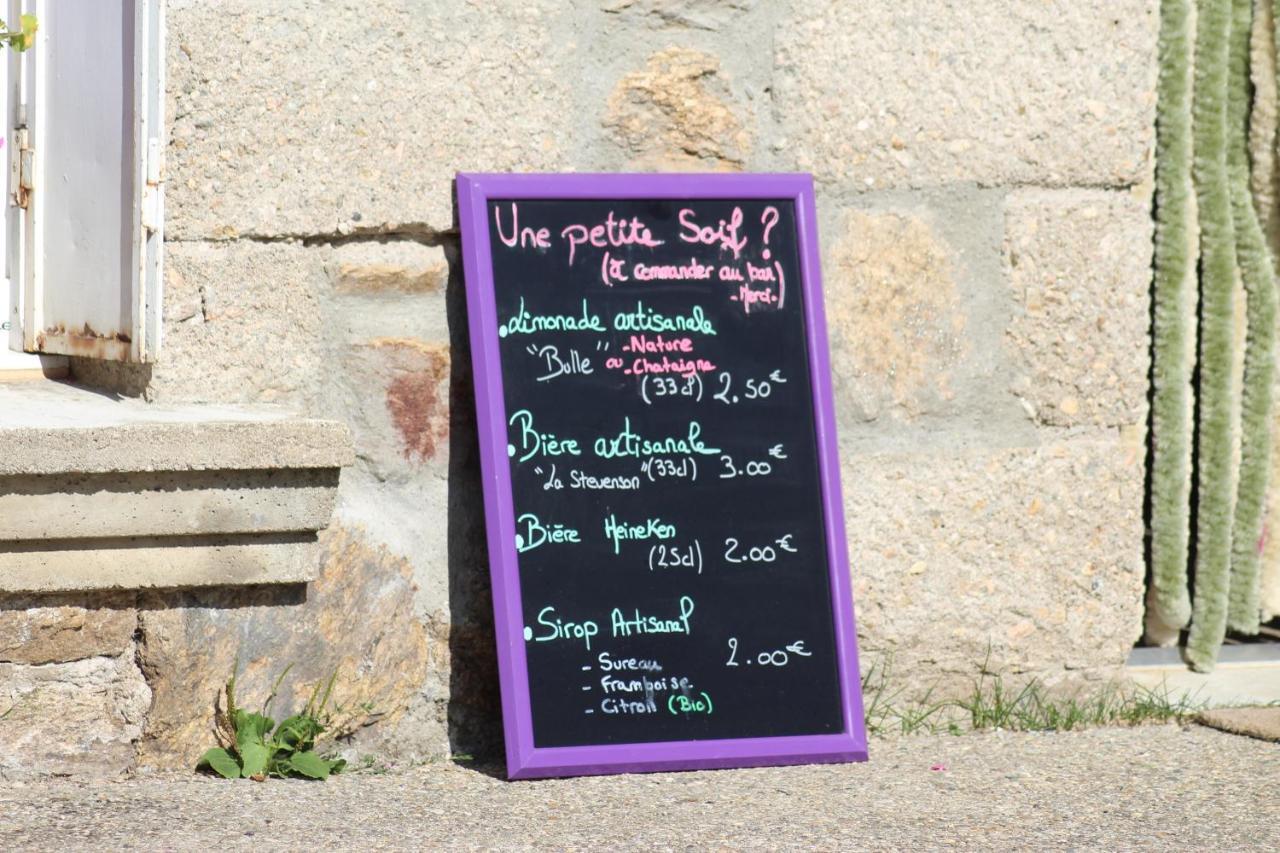 Une petite Soif ?
(à commander au bar
-Merci-)
•Limonade artisanale
-Nature
"Bulle" ou -Chataigne
(33cl) 2.50€
•Bière artisanale
"La Stevenson" (33cl) 3.00€
•Bière HeineKen
(25cl) 2.00€
•Sirop Artisanal
2.00€
- Sureau
- Framboise
- Citron (Bio)